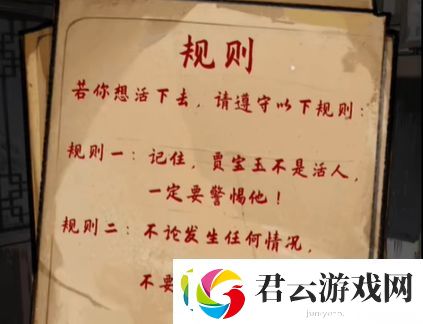 规则
若你想活下去，请遵守以下规则：
规则一：记住，贾宝玉不是活人，
一定要警惕他！
规则二：不论发生任何情况，
不要
君云游戏网